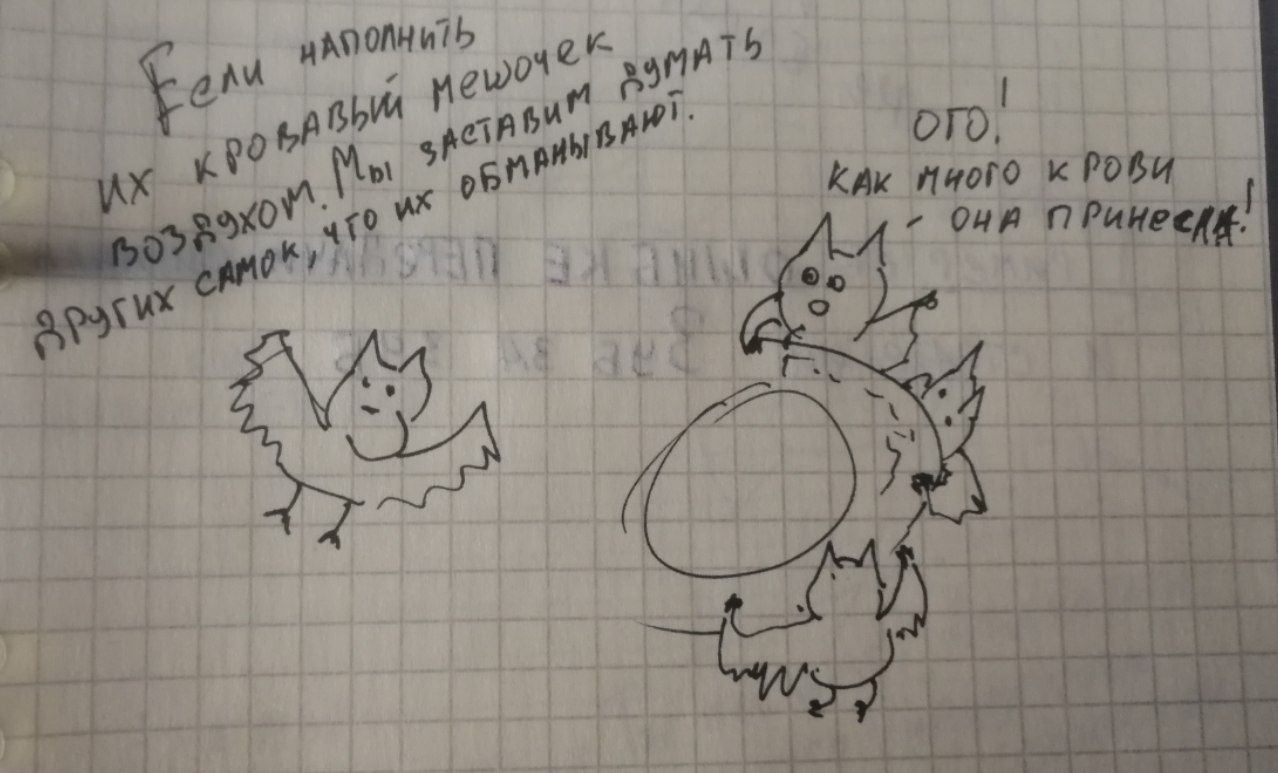 Если наполнить
их кровавый мешочек
воздухом. Мы заставим думать
других самок, что их обманывают.
ОГО!
как много крови
- она принесла!